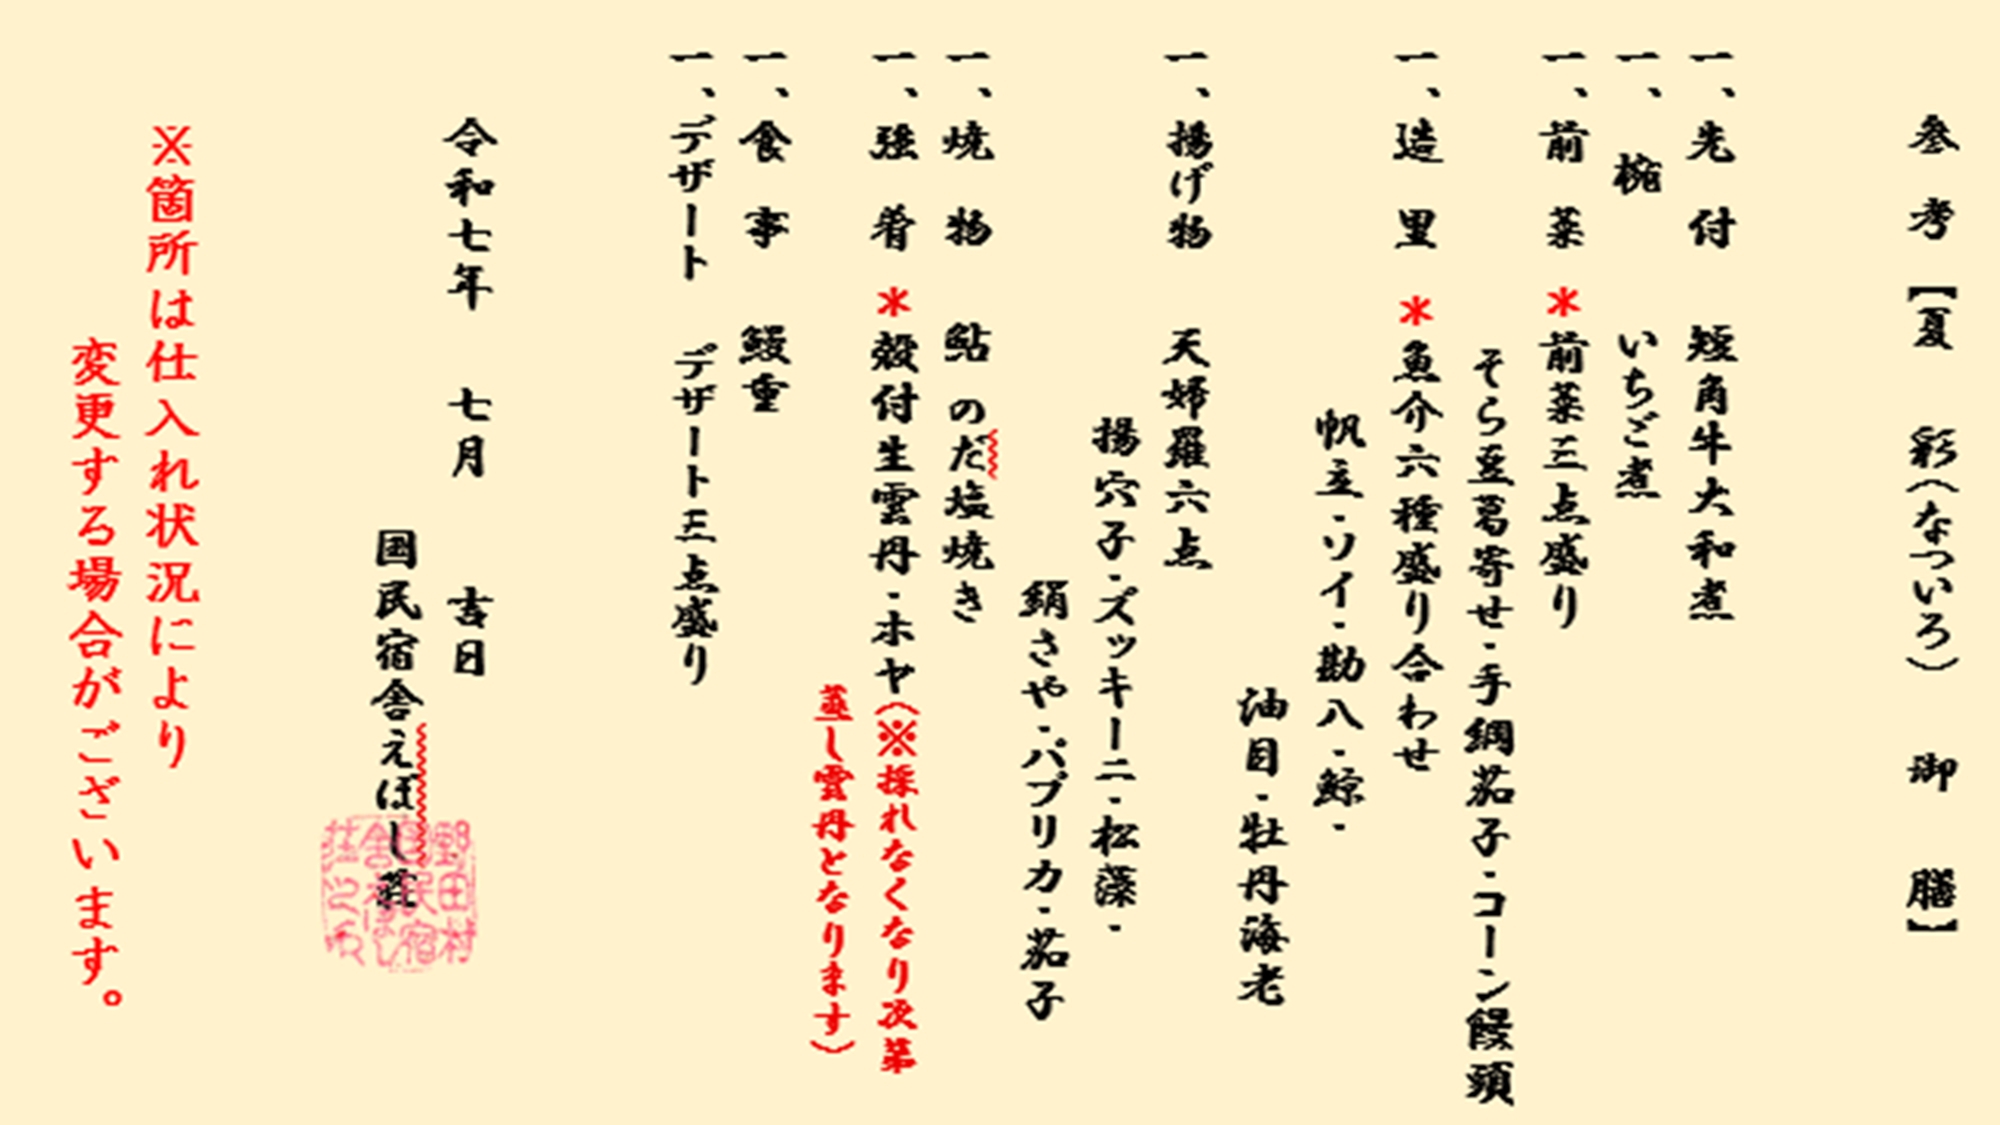 参考【夏　彩（なついろ）　御　膳】
一、先　付　短角牛大和煮
一、椀　いちご煮
一、前　菜　＊前菜三点盛り
そら豆葛寄せ・手綱茄子・コーン饅頭
一、造　里　＊魚介六種盛り合わせ
帆立・ソイ・勘八・鯨・
油目・牡丹海老
一、揚げ物　天婦羅六点
揚穴子・ズッキーニ・松藻・
絹さや・パプリカ・茄子
一、焼　物　鮎のだ塩焼き
一、強　肴　＊殻付生雲丹・ホヤ（※採れなくなり次第
蒸し雲丹となります）
一、食　事　鰻重
一、デザート　デザート三点盛り
令和七年　七月　吉日
国民宿舎えぼし荘
野田村
国民宿
舎えぼし
荘之印
※箇所は仕入れ状況により
変更する場合がございます。